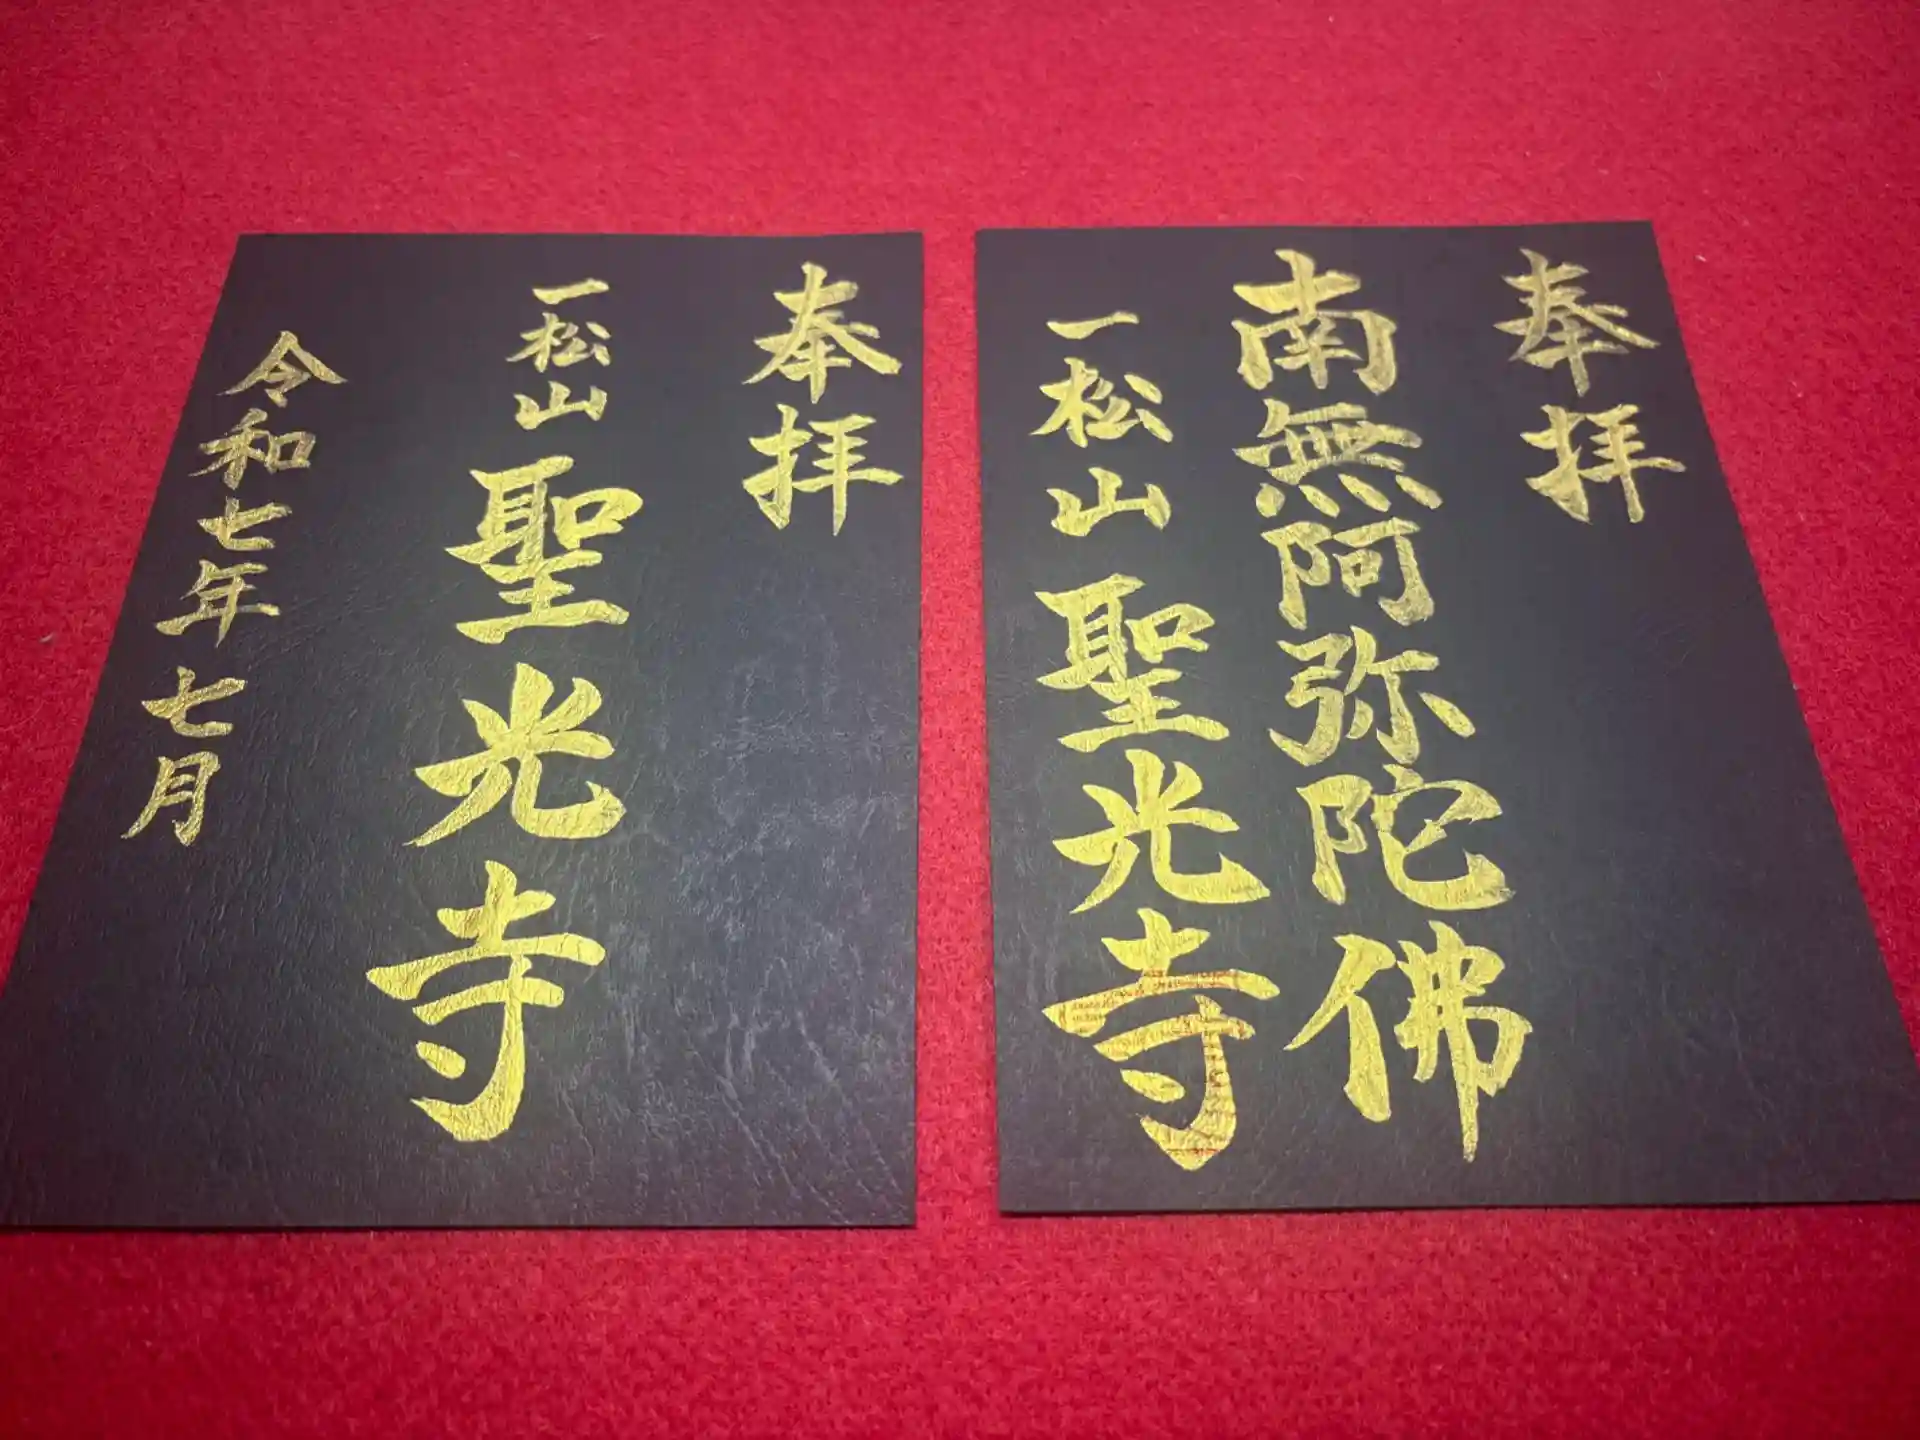 奉拝
一松山 聖光寺
令和七年 七月
奉拝
南無阿弥陀佛
一松山 聖光寺